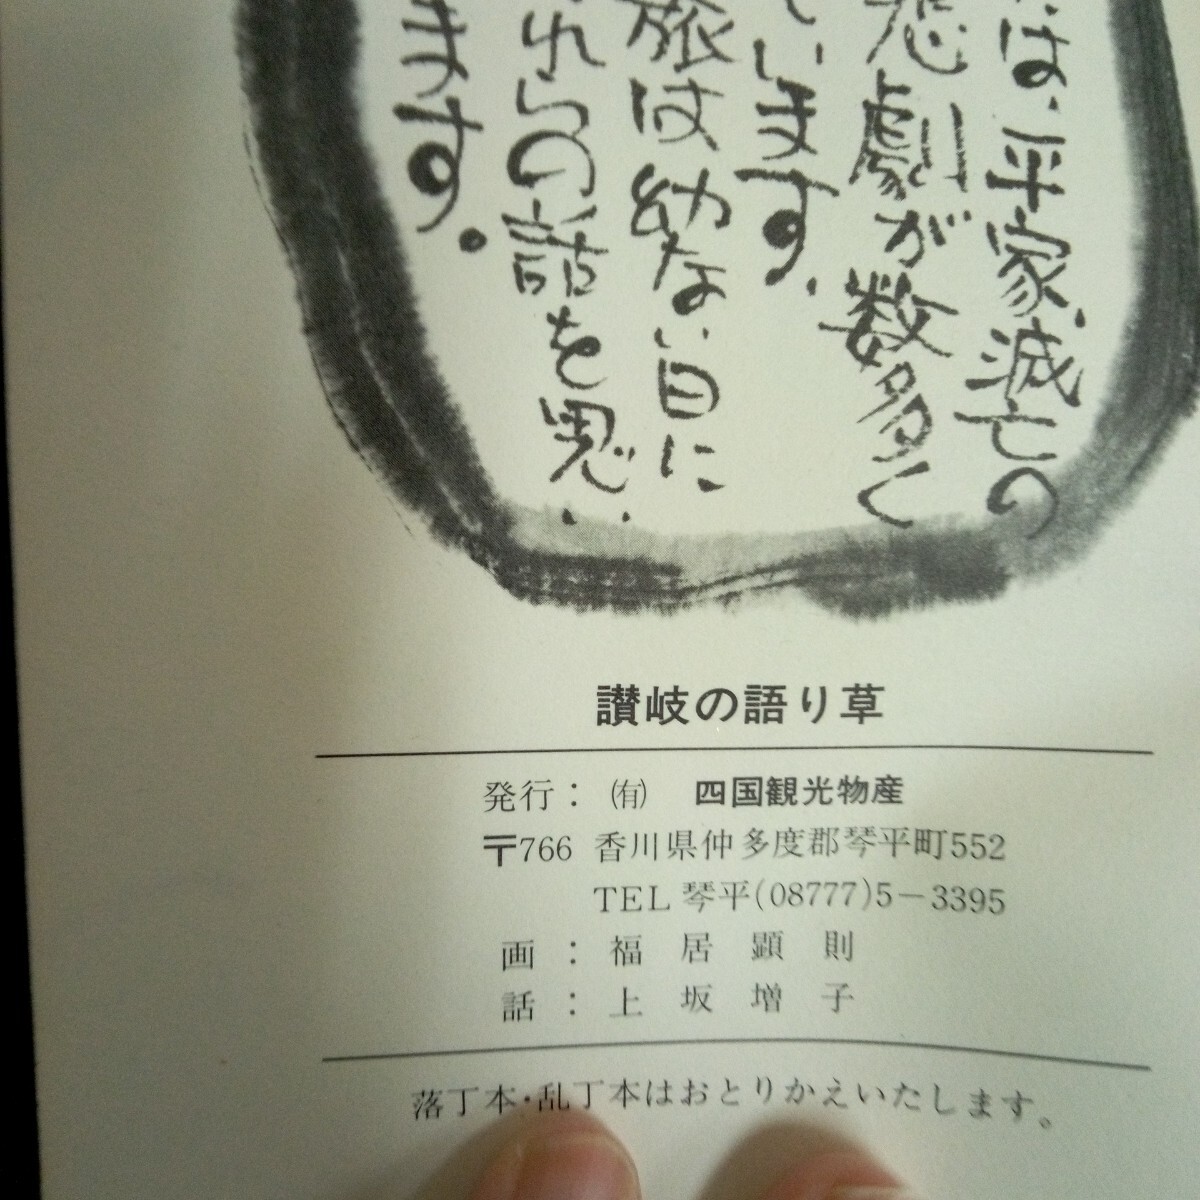 は、平家滅亡の
悲劇が数多く
ています。
旅は幼ない日に
れらの話を思い
ます。
讃岐の語り草
発行：㈲ 四国観光物産
〒766 香川県仲多度郡琴平町552
TEL 琴平(08777)5－3395
画：福居顕則
話：上坂増子
落丁本・乱丁本はおとりかえいたします。